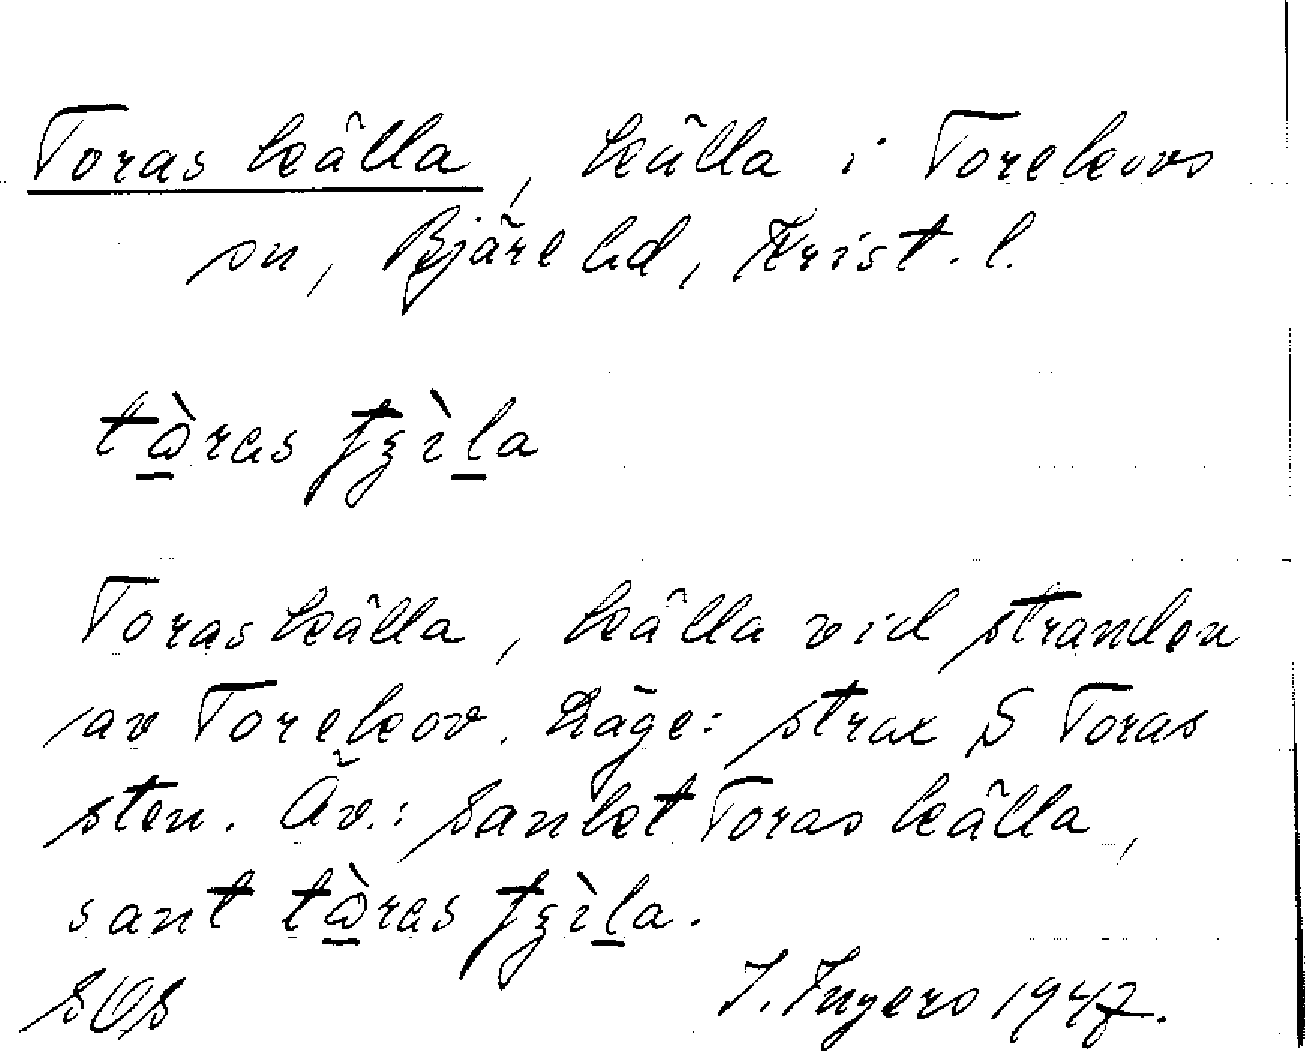 Toras källa, källa i Torekovs
sn, Bjäre hd, Krist. l.
Toras källa, källa vid stranden
av Torekov. Läge: strax S Toras
sten. Äv.: Sankt Toras källa,
sant
SOS
I. Ingers 1947.